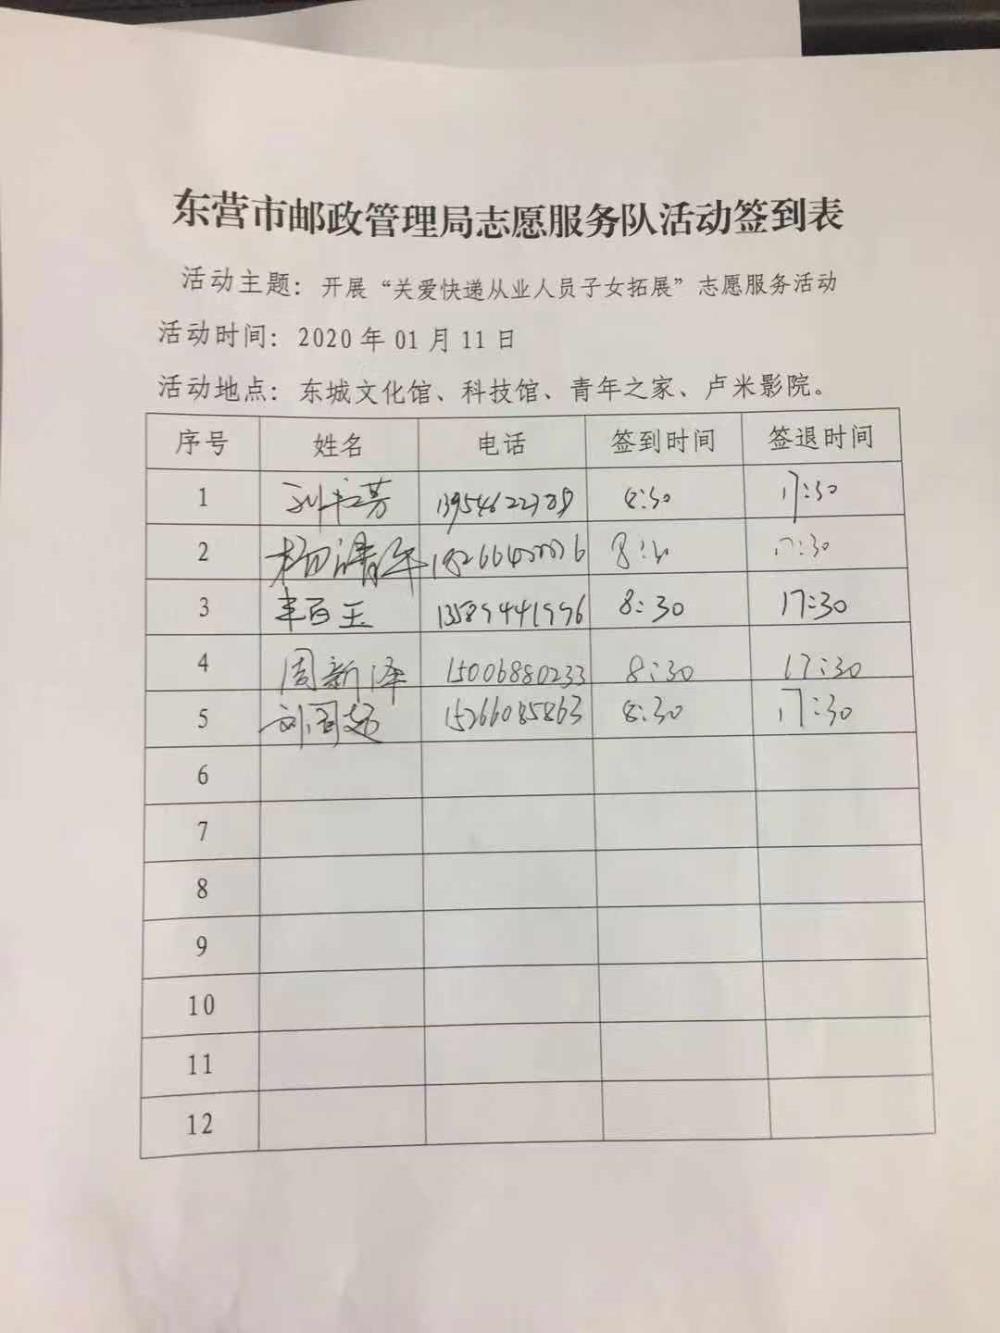 东营市邮政管理局志愿服务队活动签到表
活动主题：开展“关爱快递从业人员子女拓展”志愿服务活动
活动时间：2020 年 01 月 11 日
活动地点：东城文化馆、科技馆、青年之家、卢米影院。
序号 姓名 电话 签到时间 签退时间
1 8:30 17:30
2 杨清华 17:30
3 丰百玉 8:30 17:30
4 周新泽 15006880233 8:30 17:30
5 刘国超 15266085863 8:30 17:30
6
7
8
9
10
11
12